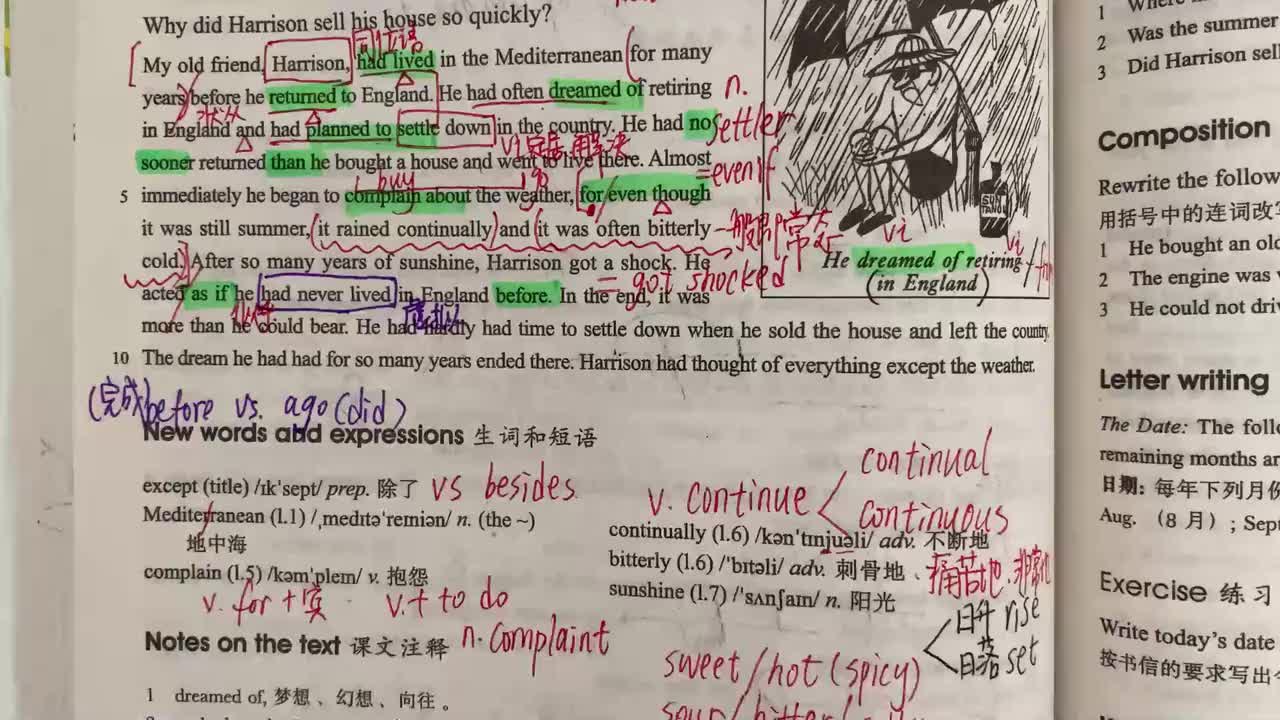 Why did Harrison sell his house so quickly?
My old friend, Harrison, had lived in the Mediterranean for many
years before he returned to England. He had often dreamed of retiring
n.
in England and had planned to settle down in the country. He had no
settler
sooner returned than he bought a house and went to live there. Almost
=even if
buy
go
5 immediately he began to complain about the weather, for even though
it was still summer, it rained continually and it was often bitterly
cold. After so many years of sunshine, Harrison got a shock. He
= got shocked
acted as if he had never lived in England before. In the end, it was
more than he could bear. He had hardly had time to settle down when he sold the house and left the country.
10 The dream he had had for so many years ended there. Harrison had thought of everything except the weather.
SUN TAN OIL
vi
vi
He dreamed of retiring
(in England)
(完成)before vs. ago(did)
New words and expressions 生词和短语
except (title) /ɪk'sept/ prep. 除了 vs besides
Mediterranean (l.1) /ˌmedɪtə'reɪniən/ n. (the ~)
地中海
complain (l.5) /kəm'pleɪn/ v. 抱怨
v. for + 宾 v. + to do
n. complaint
v. continue
continual
continuous
continually (l.6) /kən'tɪnjuəli/ adv. 不断地
bitterly (l.6) /'bɪtəli/ adv. 刺骨地、痛苦地、非常地
sunshine (l.7) /'sʌnʃaɪn/ n. 阳光
日升 rise
日落 set
sweet/hot(spicy)
sour/bitter/
Notes on the text 课文注释
1 dreamed of, 梦想、幻想、向往。
1
2 Was the summer
3 Did Harrison sell
Composition
Rewrite the follow
用括号中的连词改
1 He bought an old
2 The engine was
3 He could not
Letter writing
The Date: The
remaining months
日期: 每年下列月
Aug. (8 月) ; Sept
Exercise 练习
Write today's date
按书信的要求写出